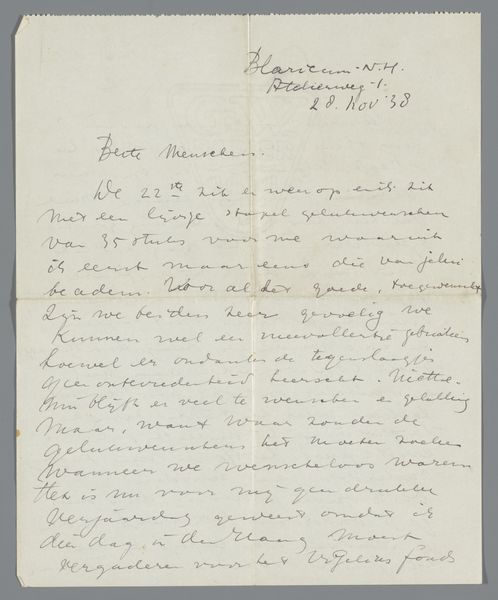 Blaricum - N.H.
Atelierweg-1.
28. Nov '38
Beste Menschen.
De 22ste zit er weer op en ik zit
met een lijvige stapel gelukwenschen
van 35 stuks voor me waaruit
ik eerst maar eens die van jelui
beadem. Voor al het goede, toegewenscht
zijn we beiden zeer gevoelig we
kunnen wel een meevallertje gebruiken
hoewel er ondanks de tegenslagjes
geen ontevredenheid heerscht. Niette-
min blijft er veel te wenschen en gelukkig
maar, want waar zouden de
gelukwenschers het moeten zoeken
wanneer we wenscheloos waren
Het is nu voor mij geen drukke
verjaardag geweest omdat ik
dien dag in den Haag moest
vergaderen voor het fonds